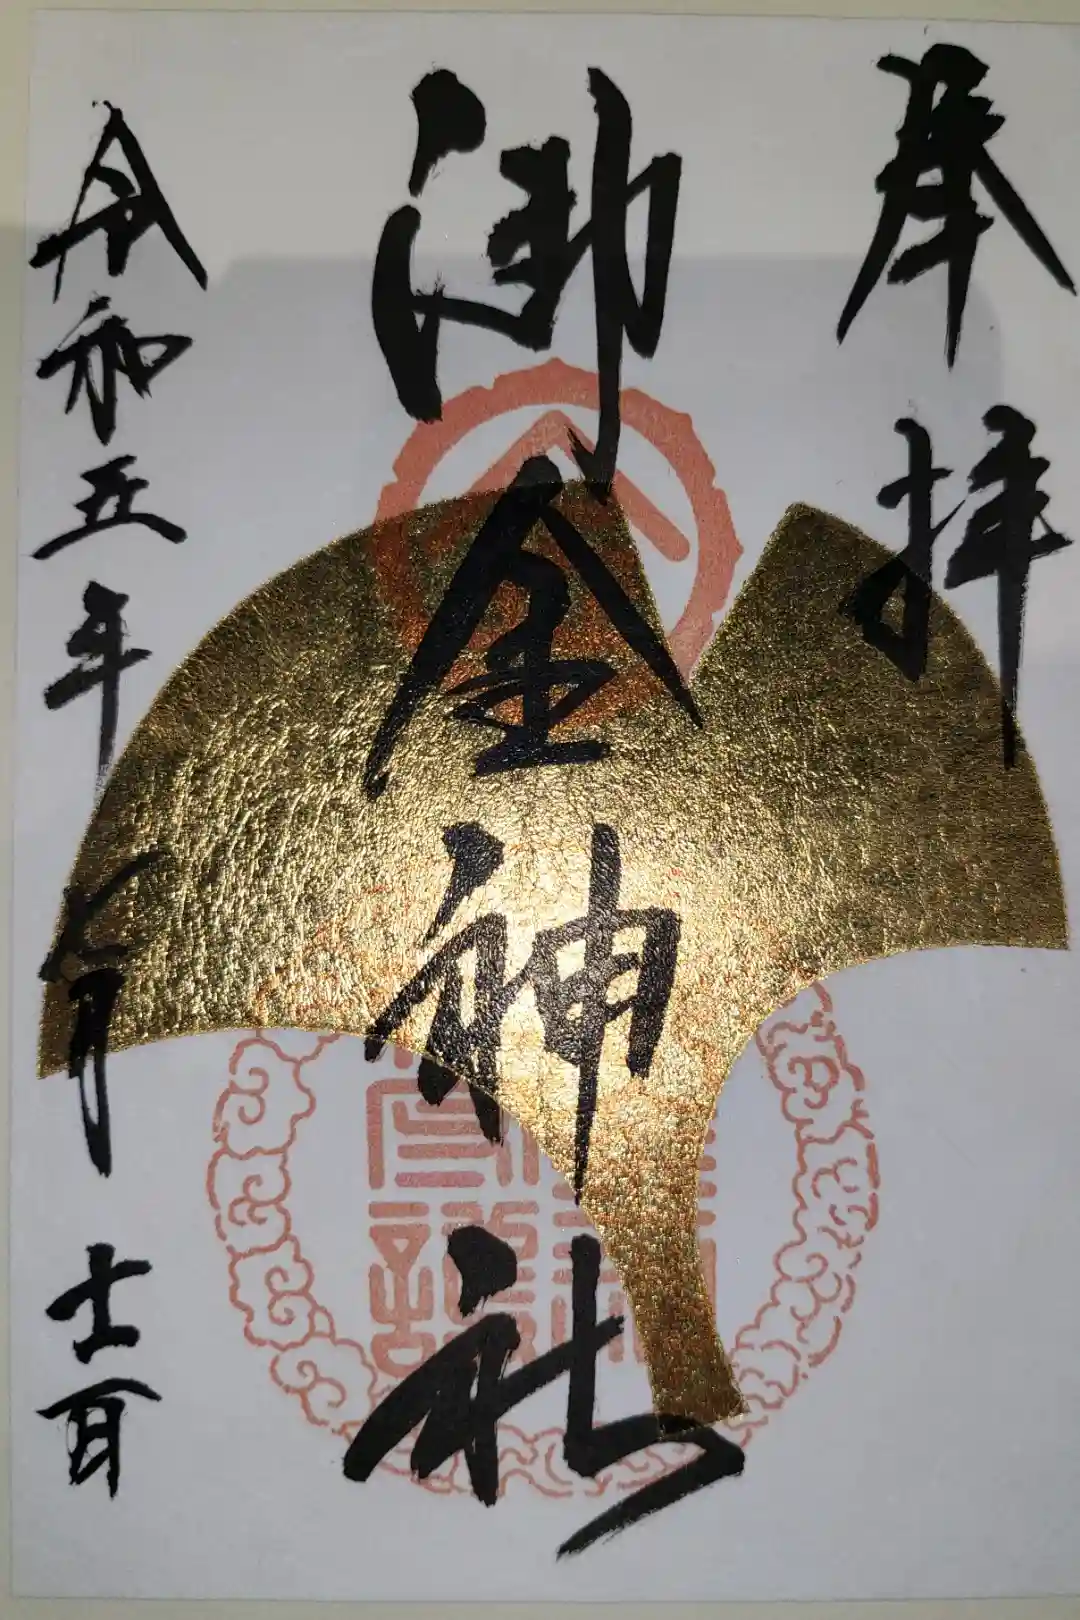 奉拝
御金神社
令和五年 月 十二日